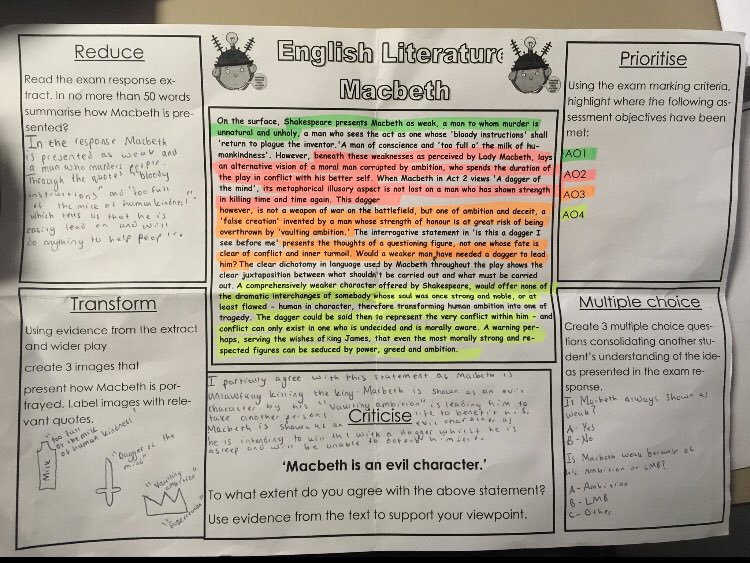 Reduce
Read the exam response ex-
tract. In no more than 50 words
summarise how Macbeth is pre-
sented?
In the response Macbeth
is presented as weak and
a man who murders people.
Through the quotes "bloody
instructions" and "too full
of the milk of human kindness"
which tells us that he is
easily lead on and will
do anything to help
English Literature
Macbeth
On the surface, Shakespeare presents Macbeth as weak, a man to whom murder is
unnatural and unholy, a man who sees the act as one whose 'bloody instructions' shall
'return to plague the inventor.'A man of conscience and 'too full o' the milk of hu-
mankindness'. However, beneath these weaknesses as perceived by Lady Macbeth, lays
an alternative vision of a moral man corrupted by ambition, who spends the duration of
the play in conflict with his better self. When Macbeth in Act 2 views 'A dagger of
the mind', its metaphorical illusory aspect is not lost on a man who has shown strength
in killing time and time again. This dagger
however, is not a weapon of war on the battlefield, but one of ambition and deceit, a
'false creation' invented by a man whose strength of honour is at great risk of being
overthrown by 'vaulting ambition.' The interrogative statement in 'is this a dagger I
see before me' presents the thoughts of a questioning figure, not one whose fate is
clear of conflict and inner turmoil. Would a weaker man have needed a dagger to lead
him? The clear dichotomy in language used by Macbeth throughout the play shows the
clear juxtaposition between what shouldn't be carried out and what must be carried
out. A comprehensively weaker character offered by Shakespeare, would offer none of
the dramatic interchanges of somebody whose soul was once strong and noble, or at
least flawed - human in character, therefore transforming human ambition into one of
tragedy. The dagger could be said then to represent the very conflict within him - and
conflict can only exist in one who is undecided and is morally aware. A warning per-
haps, serving the wishes of king James, that even the most morally strong and re-
spected figures can be seduced by power, greed and ambition.
Prioritise
Using the exam marking criteria,
highlight where the following as-
sessment objectives have been
met:
AO1
AO2
AO3
AO4
Transform
Using evidence from the extract
and wider play
create 3 images that
present how Macbeth is por-
trayed. Label images with rele-
vant quotes.
"too full
of the milk
of human kindness"
Milk
"Dagger of the
mind"
"Vaulting
ambition"
I partially agree with this statement as Macbeth is
unlawfully killing the king. Macbeth is shown as an evil
character by his "Vaulting ambition" is leading him to
take another persons life to benefit his.
Macbeth is shown as an evil character as
he is intending to kill him with a dagger whilst he is
asleep and will be unable to defend himself.
Criticise
'Macbeth is an evil character.'
To what extent do you agree with the above statement?
Use evidence from the text to support your viewpoint.
Multiple choice
Create 3 multiple choice ques-
tions consolidating another stu-
dent's understanding of the ide-
as presented in the exam re-
sponse.
Is Macbeth always shown as
weak?
A - Yes
B - No
Is Macbeth weak because of
his ambition or LMB?
A - Ambition
B - LMB
C - Other